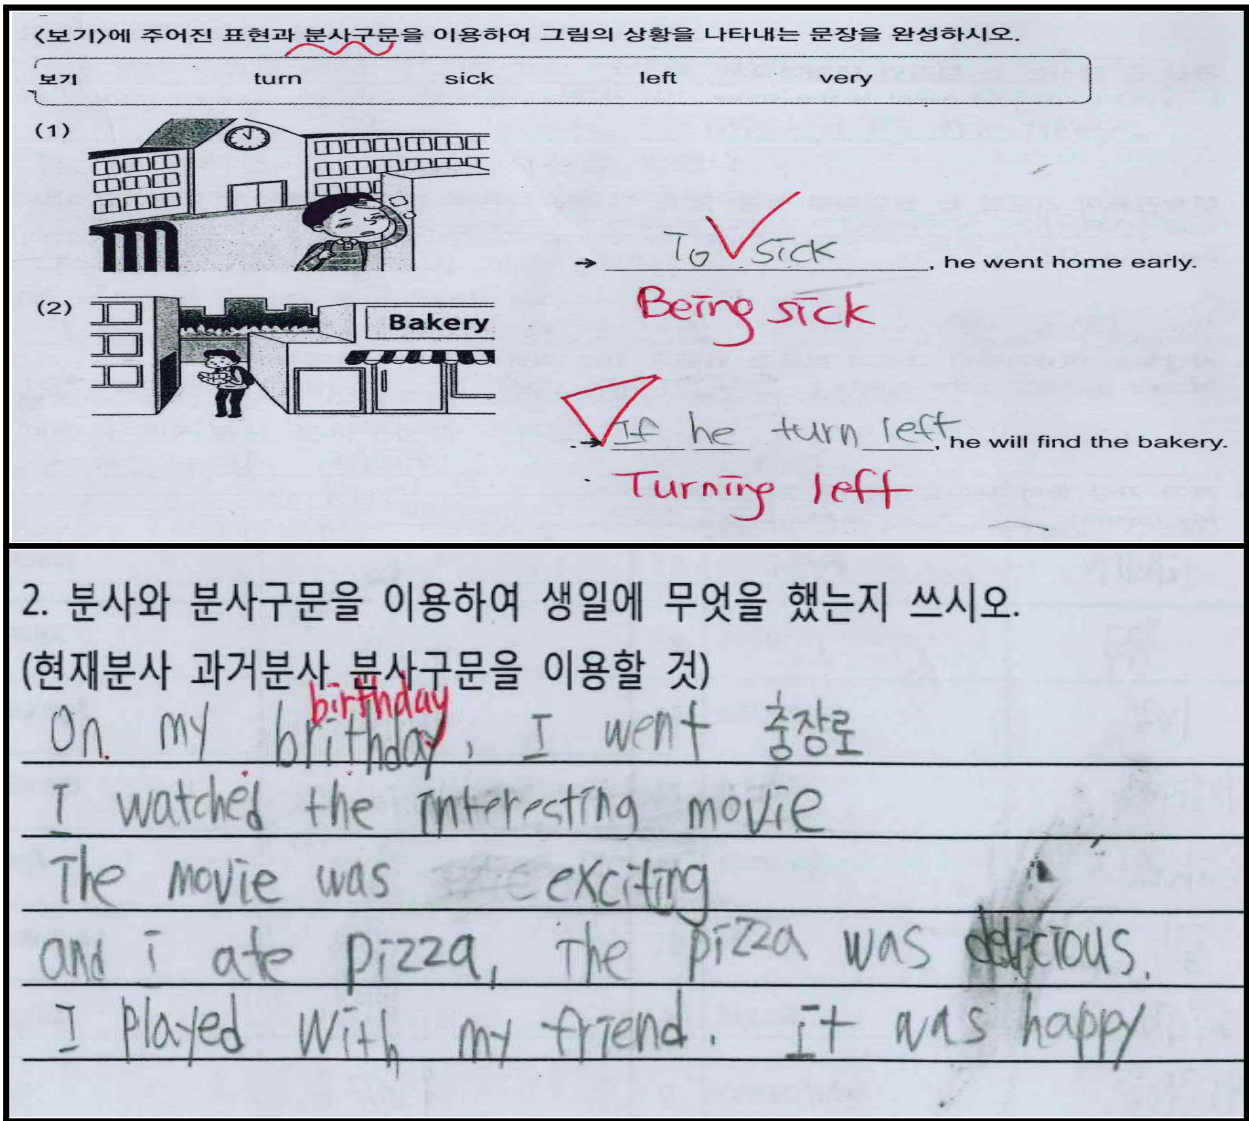 <보기>에 주어진 표현과 분사구문을 이용하여 그림의 상황을 나타내는 문장을 완성하시오.
보기 turn sick left very
(1)
To sick, he went home early.
Being sick
(2)
Bakery
If he turn left, he will find the bakery.
Turning left
2. 분사와 분사구문을 이용하여 생일에 무엇을 했는지 쓰시오.
(현재분사 과거분사 분사구문을 이용할 것)
birthday
On my brithday, I went 충장로
I watched the interesting movie
The movie was exciting
and i ate pizza, The pizza was delicious.
I played with my friend. It was happy